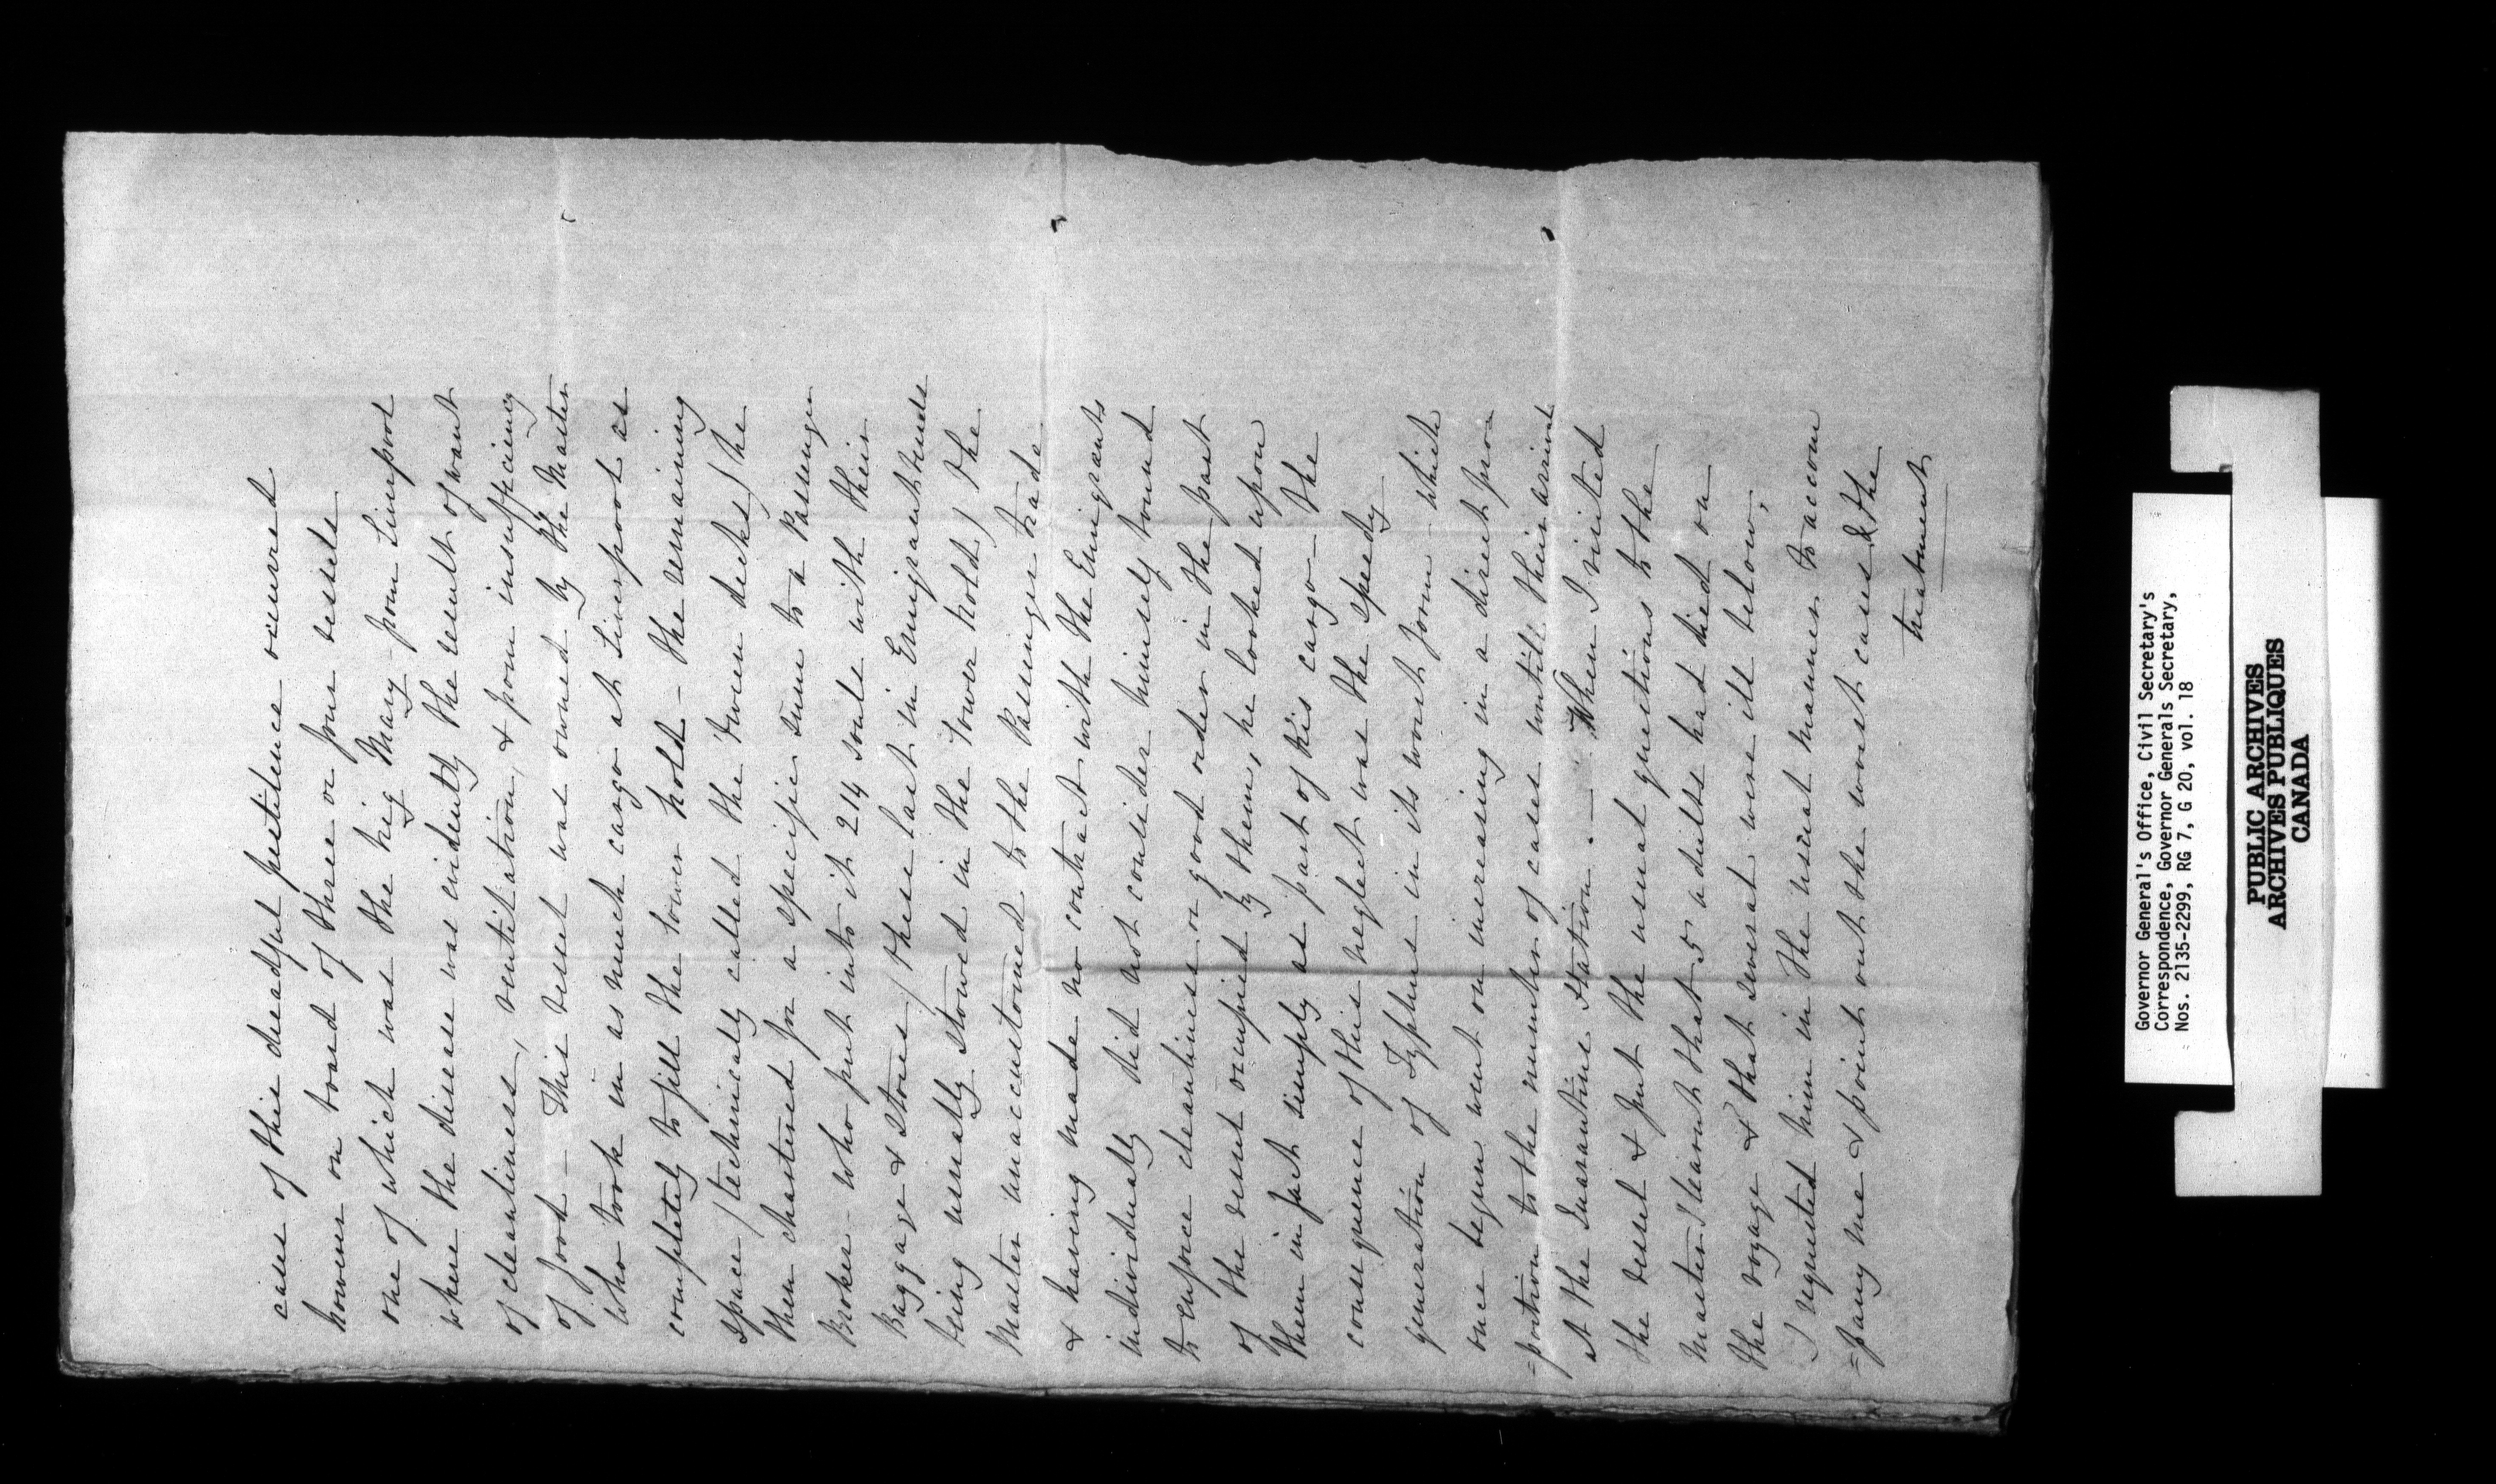 cases of this dreadful pestilence occurred
however on board of three or four vessels
one of which was the brig Mary from Liverpool
where the disease was evidently the result of want
of cleanliness, ventilation, & from insufficiency
of food – This vessel was owned by the Master
who took in as much cargo at Liverpool as
completely to fill the lower hold – the remaining
space / technically called the 'tween decks / he
then chartered for a specific sum to a Passenger
Broker – who put into it 214 souls with their
Baggage & Stores / these last in Emigrant vessels
being usually stowed in the lower hold / The
Master unaccustomed to the Passenger trade
& having made no contract with the Emigrants
individually did not consider himself bound
to enforce cleanliness or good order in the part
of the vessel occupied by them, he looked upon
them in fact simply as part of his cargo – the
consequence of this neglect was the speedy
generation of Typhus in its worst form which
once begun went on increasing in a direct pro
=portion to the number of cases untill their arrival
at the Quarantine Station. – When I visited
the vessel & put the usual questions to the
Master I learnt that 5 adults had died on
the voyage & that several were ill below,
I requested him in the usual manner to accom
=pany me & point out the worst cases & the
treatment
Governor General's Office, Civil Secretary's
Correspondence, Governor Generals Secretary,
Nos. 2135-2299, RG 7, G 20, vol. 18
PUBLIC ARCHIVES
ARCHIVES PUBLIQUES
CANADA